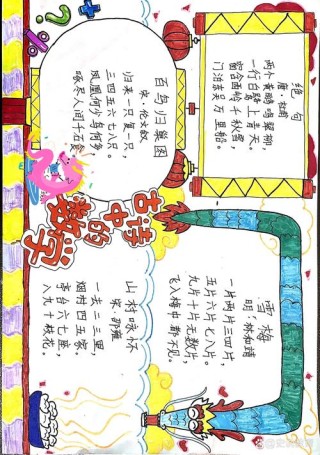 古诗中的数学
百鸟归巢图
宋·伦文叙
归来一只复一只,
三四五六七八只。
凤凰何少鸟何多,
啄尽人间千石谷。
绝句
唐·杜甫
两个黄鹂鸣翠柳,
一行白鹭上青天。
窗含西岭千秋雪,
门泊东吴万里船。
山村咏怀
宋·邵雍
一去二三里,
烟村四五家。
亭台六七座,
八九十枝花。
雪梅
明·林和靖
一片两片三四片,
五片六片七八片。
九片十片无数片,
飞入梅中都不见。